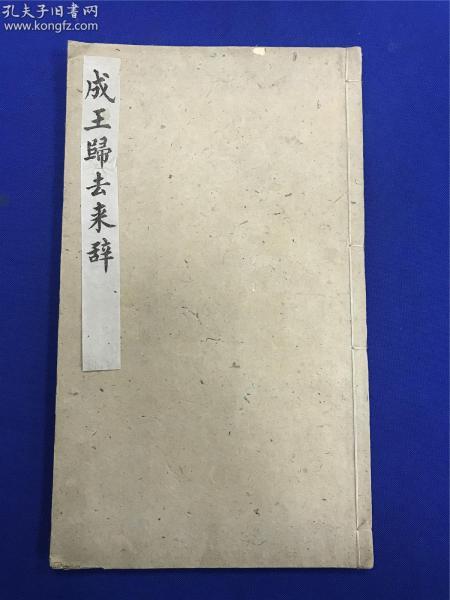 孔夫子旧书网
www.kongfz.com
成王歸去来辞